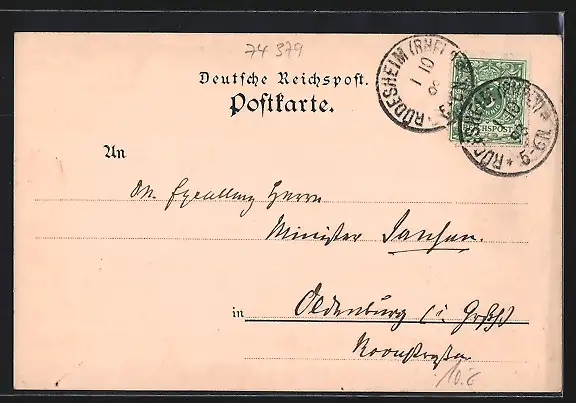 74 379
Deutsche Reichspost.
Postkarte.
An
Sr. Excellenz Herrn
Minister Jansen.
in Oldenburg (i. Grßh.)
Roonstraße
10.-
RÜDESHEIM (RHEIN)
1 10
5-6N
RÜDESHEIM (RHEIN)
1 10
5-6N
REICHSPOST